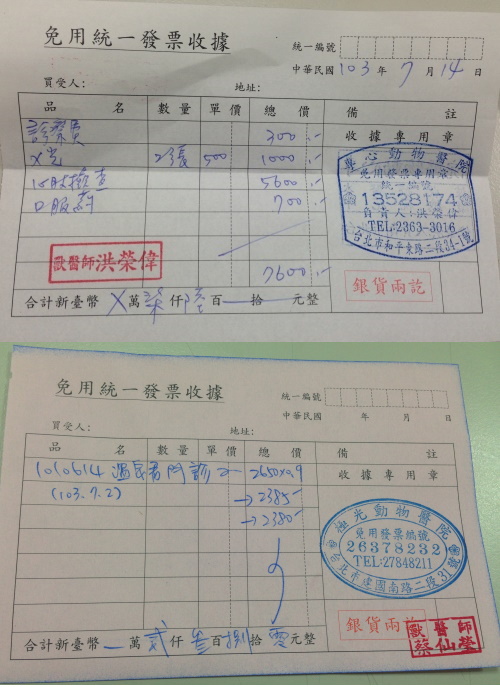 免用統一發票收據
統一編號
中華民國 103 年 7 月 14 日
買受人： 地址：
品 名 數量 單價 總價 備 註
診療費 300.-
收據專用章
X光 2張 500 1000.-
心臟檢查 5600.-
口服藥 700.-
專心動物醫院
免用發票專用章
統一編號
13528174
負責人:洪榮偉
TEL:2363-3016
台北市和平東路二段34-1號
獸醫師 洪榮偉
7600.-
銀貨兩訖
合計新臺幣 X 萬 柒 仟 陸 百 拾 元整
免用統一發票收據
統一編號
中華民國 年 月 日
買受人： 地址：
品 名 數量 單價 總價 備 註
1010614 門診 2650x0.9
收據專用章
(103.7.2) →2385
→2380
極光動物醫院
免用發票編號
26378232
TEL:27848211
台北市建國南路二段31號
銀貨兩訖
獸醫師
蔡仙瑩
合計新臺幣 萬 貳 仟 叁 百 捌 拾 零 元整